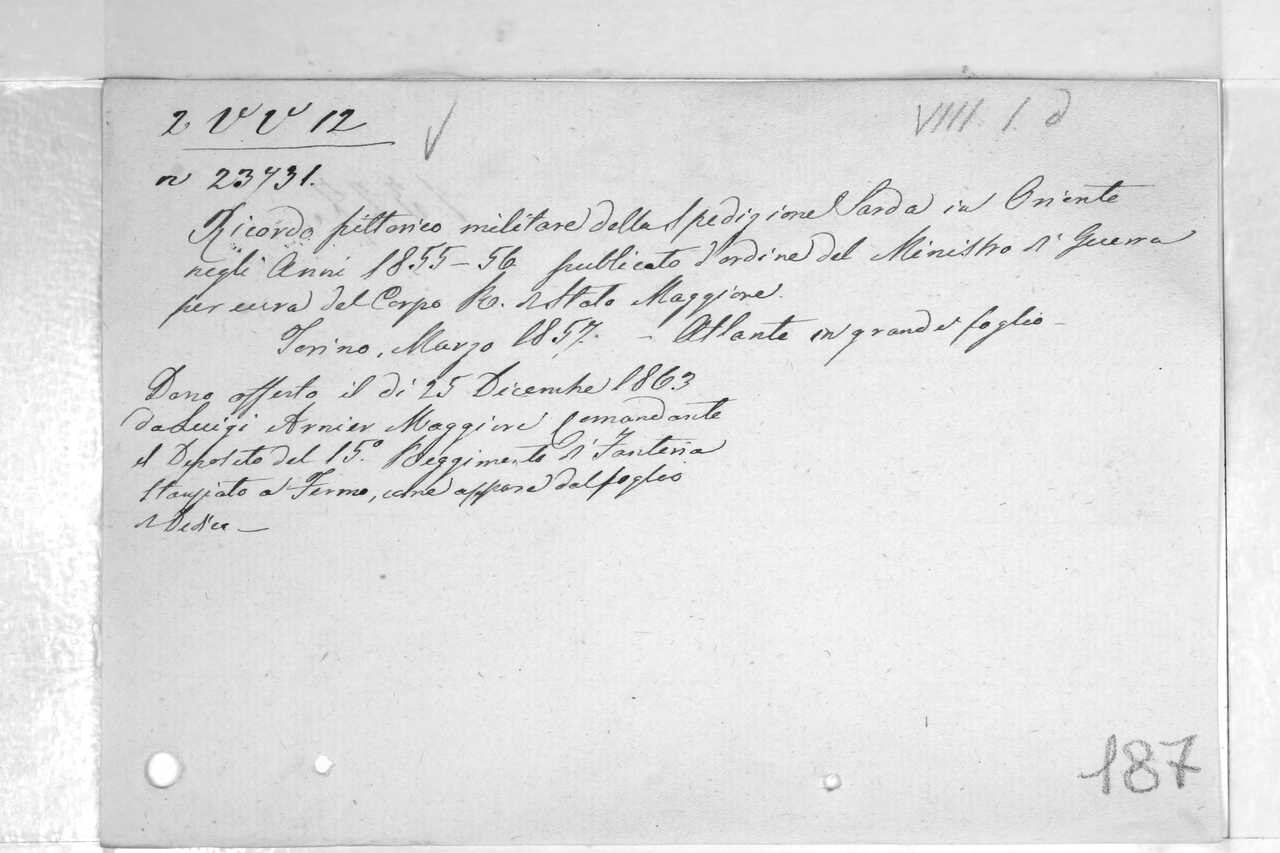 2 V V 12
VIIII. 1. d
n 23731.
Ricordo pittorico militare della Spedizione Sarda in Oriente
negli Anni 1855-56 publicato d'ordine del Ministro di Guerra
per cura del Corpo R. di Stato Maggiore.
Torino, Marzo 1857. - Atlante in grande foglio -
Dono offerto il di 25 Dicembre 1863
da Luigi Arnier Maggiore Comandante
il Deposito del 15.º Reggimento di Fanteria
stanziato a Fermo, come appare dal foglio
di Dedica -
187